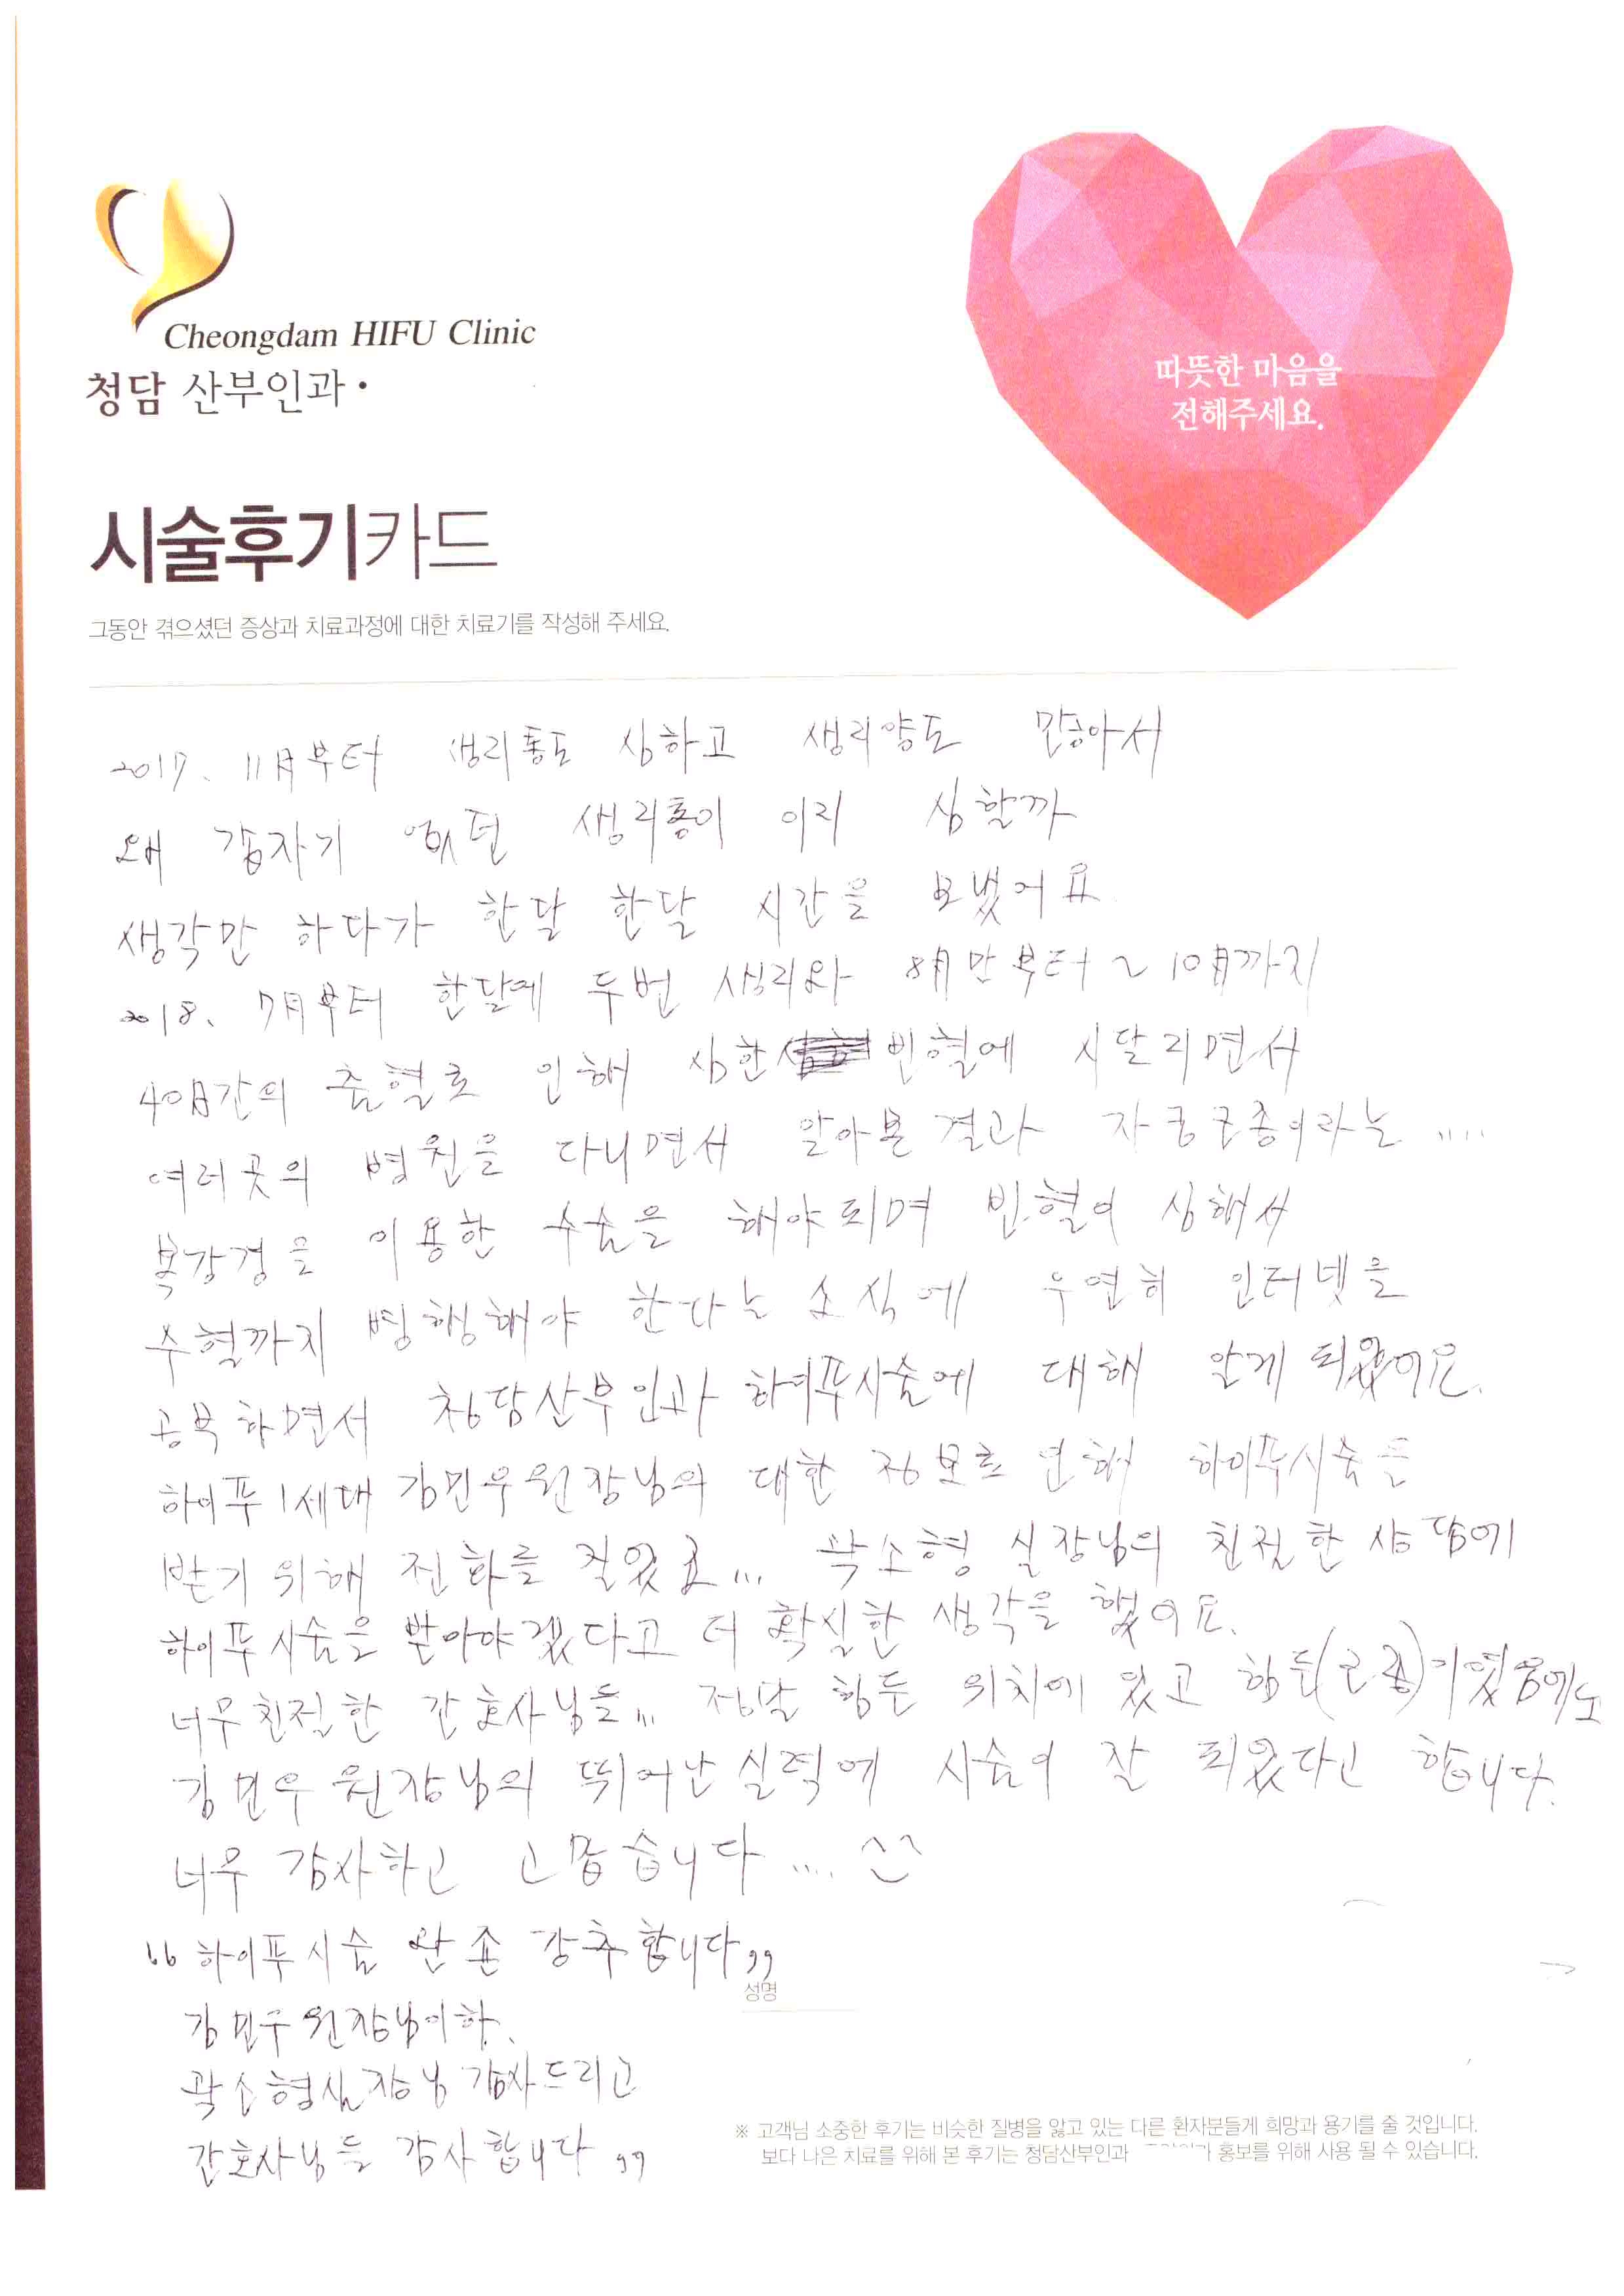 Cheongdam HIFU Clinic
청담 산부인과
따뜻한 마음을
전해주세요.
시술후기카드
그동안 겪으셨던 증상과 치료과정에 대한 치료기를 작성해 주세요.
2017. 11月부터 생리통도 심하고 생리양도 많아서
왜 갑자기 없던 생리통이 이리 심할까
생각만 하다가 한달 한달 시간을 보냈어요.
2018. 7月부터 한달에 두번 생리와 8月만부터 ~ 10月까지
40日간의 출혈로 인해 심한 빈혈에 시달리면서
여러곳의 병원을 다니면서 알아본 결과 자궁근종이라는 ....
복강경을 이용한 수술을 해야되며 빈혈이 심해서
수혈까지 병행해야 한다는 소식에 우연히 인터넷을
공부하면서 청담산부인과 하이푸시술에 대해 알게 되었어요.
하이푸 1세대 김민우원장님의 대한 정보로 인해 하이푸시술을
받기 위해 전화를 걸었죠... 곽소형 실장님의 친절한 상담에
하이푸 시술을 받아야겠다고 더 확실한 생각을 했어요.
너무 친절한 간호사님들... 정말 힘든 위치에 있고 힘든(근종)기였음에도
김민우 원장님의 뛰어난 실력에 시술이 잘 되었다고 합니다.
너무 감사하고 고맙습니다 .... ^^
“하이푸시술 완죤 강추합니다”
성명
김민우 원장님이하.
곽소형실장님 감사드리고
간호사님들 감사합니다 ”
※ 고객님 소중한 후기는 비슷한 질병을 앓고 있는 다른 환자분들게 희망과 용기를 줄 것입니다.
보다 나은 치료를 위해 본 후기는 청담산부인과 홍보를 위해 사용 될 수 있습니다.